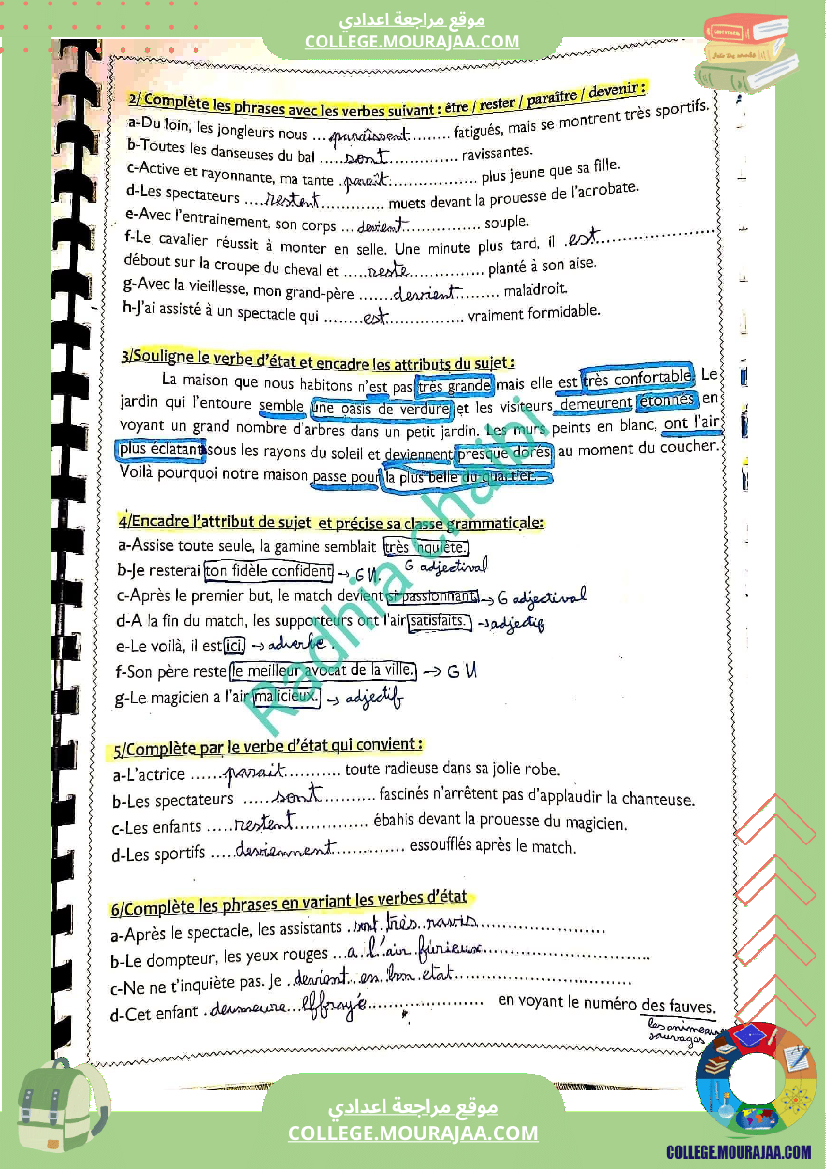 موقع مراجعة اعدادي
COLLEGE.MOURAJAA.COM
2/ Complète les phrases avec les verbes suivant : être / rester / paraître / devenir :
a-Du loin, les jongleurs nous ... paraissent ........ fatigués, mais se montrent très sportifs.
b-Toutes les danseuses du bal ..... sont .............. ravissantes.
c-Active et rayonnante, ma tante . parait .................. plus jeune que sa fille.
d-Les spectateurs .... restent ............. muets devant la prouesse de l'acrobate.
e-Avec l'entrainement, son corps ... devient ................ souple.
f-Le cavalier réussit à monter en selle. Une minute plus tard, il . est ........................
débout sur la croupe du cheval et ..... reste ................ planté à son aise.
g-Avec la vieillesse, mon grand-père ....... devient ......... maladroit.
h-J'ai assisté à un spectacle qui ........ est ................ vraiment formidable.
3/Souligne le verbe d'état et encadre les attributs du sujet :
La maison que nous habitons n'est pas très grande mais elle est très confortable. Le
jardin qui l'entoure semble une oasis de verdure et les visiteurs demeurent étonnés en
voyant un grand nombre d'arbres dans un petit jardin. Les murs peints en blanc, ont l'air
plus éclatant sous les rayons du soleil et deviennent presque dorés au moment du coucher.
Voilà pourquoi notre maison passe pour la plus belle du quartier.
4/Encadre l'attribut de sujet et précise sa classe grammaticale:
a-Assise toute seule, la gamine semblait très inquiète.
G adjectival
b-Je resterai ton fidèle confident → GN.
c-Après le premier but, le match devient si passionnant → G adjectival
d-A la fin du match, les supporteurs ont l'air satisfaits. → adjectif
e-Le voilà, il est ici. → adverbe.
f-Son père reste le meilleur avocat de la ville. → GN
g-Le magicien a l'air malicieux. → adjectif
Radhia chaibi
5/Complète par le verbe d'état qui convient :
a-L'actrice ...... parait .......... toute radieuse dans sa jolie robe.
b-Les spectateurs ...... sont .......... fascinés n'arrêtent pas d'applaudir la chanteuse.
c-Les enfants ..... restent .............. ébahis devant la prouesse du magicien.
d-Les sportifs ..... deviennent .............. essoufflés après le match.
6/Complète les phrases en variant les verbes d'état
a-Après le spectacle, les assistants . sont très ravis ........................
b-Le dompteur, les yeux rouges ... a l'air furieux ................................
c-Ne ne t'inquiète pas. Je . devient en bon état ................................
d-Cet enfant . demeure effrayé ...................... en voyant le numéro des fauves.
les animaux
sauvages
موقع مراجعة اعدادي
COLLEGE.MOURAJAA.COM
COLLEGE.MOURAJAA.COM